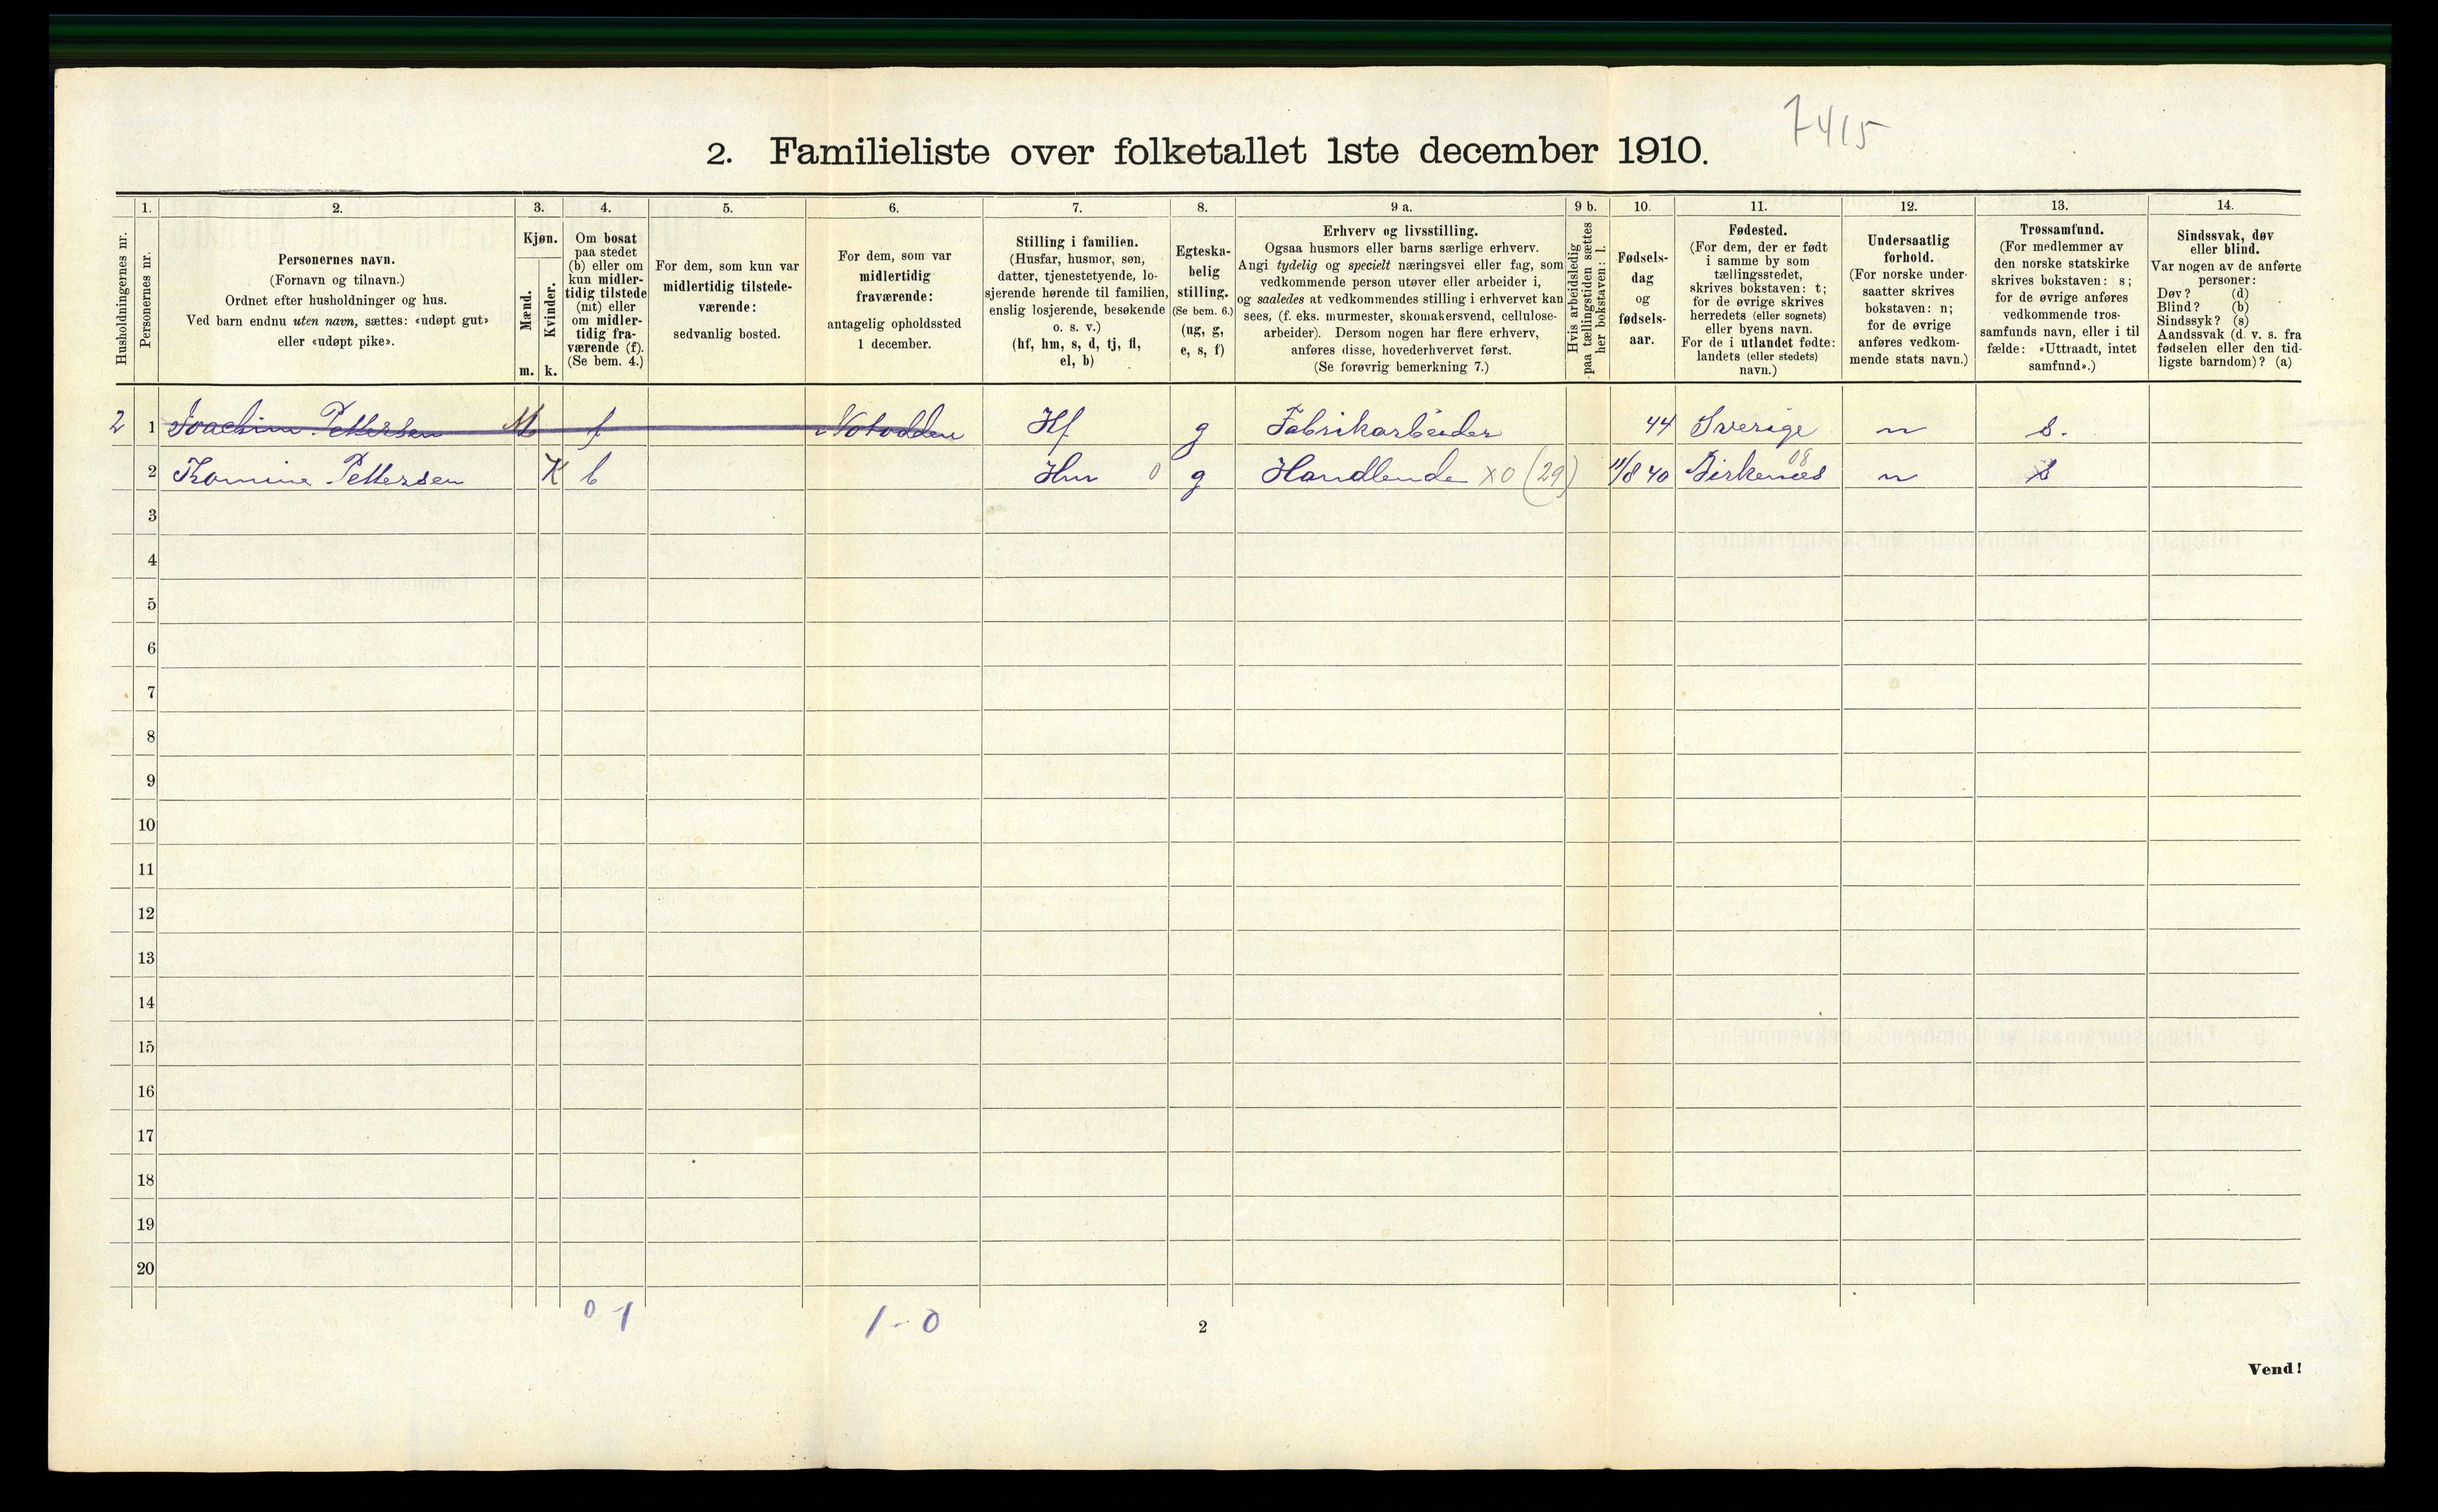 7415
2. Familieliste over folketallet 1ste december 1910.
1. 2. 3. 4. 5. 6. 7. 8. 9 a. 9 b. 10. 11. 12. 13. 14.
Husholdningernes nr.
Personernes nr.
Personernes navn.
(Fornavn og tilnavn.)
Ordnet efter husholdninger og hus.
Ved barn endnu uten navn, sættes: «udøpt gut»
eller «udøpt pike».
Kjøn.
Mænd.
Kvinder.
m. k.
Om bosat
paa stedet
(b) eller om
kun midler-
tidig tilstede
(mt) eller
om midler-
tidig fra-
værende (f).
(Se bem. 4.)
For dem, som kun var
midlertidig tilstede-
værende:
sedvanlig bosted.
For dem, som var
midlertidig
fraværende:
antagelig opholdssted
1 december.
Stilling i familien.
(Husfar, husmor, søn,
datter, tjenestetyende, lo-
sjerende hørende til familien,
enslig losjerende, besøkende
o. s. v.)
(hf, hm, s, d, tj, fl,
el, b)
Egteska-
belig
stilling.
(Se bem. 6.)
(ug, g,
e, s, f)
Erhverv og livsstilling.
Ogsaa husmors eller barns særlige erhverv.
Angi tydelig og specielt næringsvei eller fag, som
vedkommende person utøver eller arbeider i,
og saaledes at vedkommendes stilling i erhvervet kan
sees, (f. eks. murmester, skomakersvend, cellulose-
arbeider). Dersom nogen har flere erhverv,
anføres disse, hovederhvervet først.
(Se forøvrig bemerkning 7.)
Hvis arbeidsledig
paa tællingstiden sættes
her bokstaven: l.
Fødsels-
dag
og
fødsels-
aar.
Fødested.
(For dem, der er født
i samme by som
tællingsstedet,
skrives bokstaven: t;
for de øvrige skrives
herredets (eller sognets)
eller byens navn.
For de i utlandet fødte:
landets (eller stedets)
navn.)
Undersaatlig
forhold.
(For norske under-
saatter skrives
bokstaven: n;
for de øvrige
anføres vedkom-
mende stats navn.)
Trossamfund.
(For medlemmer av
den norske statskirke
skrives bokstaven: s;
for de øvrige anføres
vedkommende tros-
samfunds navn, eller i til
fælde: «Uttraadt, intet
samfund».)
Sindssvak, døv
eller blind.
Var nogen av de anførte
personer:
Døv? (d)
Blind? (b)
Sindssyk? (s)
Aandssvak (d. v. s. fra
fødselen eller den tid-
ligste barndom)? (a)
2 1 Joachim Pettersen M f Notodden Hf g Fabrikarbeider 44 Sverige n s.
2 Pettersen K b Hm 0 g Handlende X0 (29) 11/8 40 Birkenæs 08 n s
3
4
5
6
7
8
9
10
11
12
13
14
15
16
17
18
19
20
0 1 1-0
2
Vend!